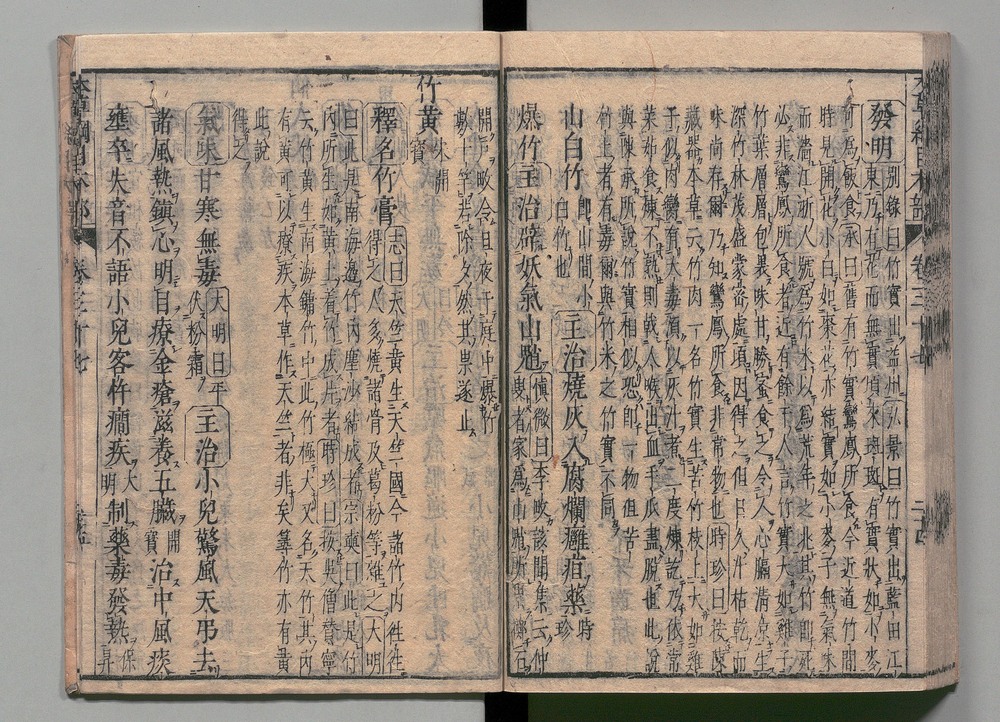 發明別錄曰竹實出益州弘景曰竹實出藍田江
東乃有花而無實頃來斑斑有實狀如小麥
可為飯食承曰舊有竹實鸞鳳所食今近道竹間
時見開花小白如棗花亦結實如小麥子無氣味
而濇江浙人號為竹米以為荒年之兆其竹即死
必非鸞鳳所食者近有餘干人言竹實大如雞子
竹葉層層包裹味甘勝蜜食之令人心膈清涼生
深竹林茂盛蒙密處頃因得之但日久汁枯乾而
味尚存爾乃知鸞鳳所食非常物也時珍曰按陳
藏器本草云竹肉一名竹實生苦竹枝上大如雞
子似肉臠有大毒須以灰汁煮二度煉訖乃依常
菜茹食煉不熟則戟人喉出血手爪盡脫也此說
與陳承所說竹實相似恐即一物但苦
竹上者有毒爾與竹米之竹實不同
山白竹即山間小白竹也主治燒灰入腐爛癰疽藥時珍
爆竹主治辟妖氣山魈慎微曰李畋該聞集云仲
叟者家為山魈所祟擲石
開戶畋令旦夜于庭中爆竹
數十竿若除夕然其祟遂止
竹黃宋開寶
釋名竹膏志曰天竺黃生天竺國今諸竹內往往
得之人多燒諸骨及葛粉等雜之大明
曰此是南海邊竹內塵沙結成者宗奭曰此是竹
內所生如黃土著竹成片者時珍曰按吳僧贊寧
云竹黃生南海鏞竹中此竹極大又名天竹其內
有黃可以療疾本草作天竺者非矣䈽竹亦有黃
此說
得之
氣味甘寒無毒大明曰平伏粉霜主治小兒驚風天吊去
諸風熱鎮心明目療金瘡滋養五臟開寶治中風痰
壅卒失音不語小兒客忤癇疾大明制藥毒發熱保昇